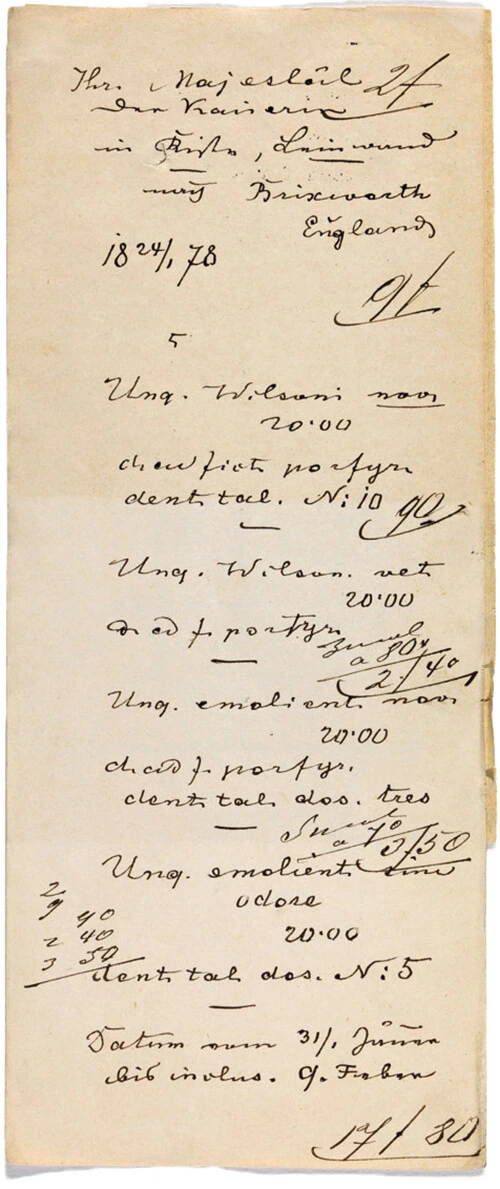 Ihr. Majestät 2f
der Kaiserin
in Kiste, Leinwand
nach Brixworth
England
18 24/1 78
9f
5
Ung. Wilsoni nov.
20·00
d. ad fict. porfyr.
dent. tal. N: 10 90
Ung. Wilson. vet.
20·00
d. ad f. porfyr.
a 80x
2/40
Ung. emolient. nov.
20·00
d. ad f. porfyr.
dent. tal. dos. tres
a 70
3/50
Ung. emolient. sine
odore
20·00
2
9 90
2 40
3 50
dent. tal. dos. N: 5
Datum vom 31/1 Jänner
bis inclus. 9. Feber
17f 80